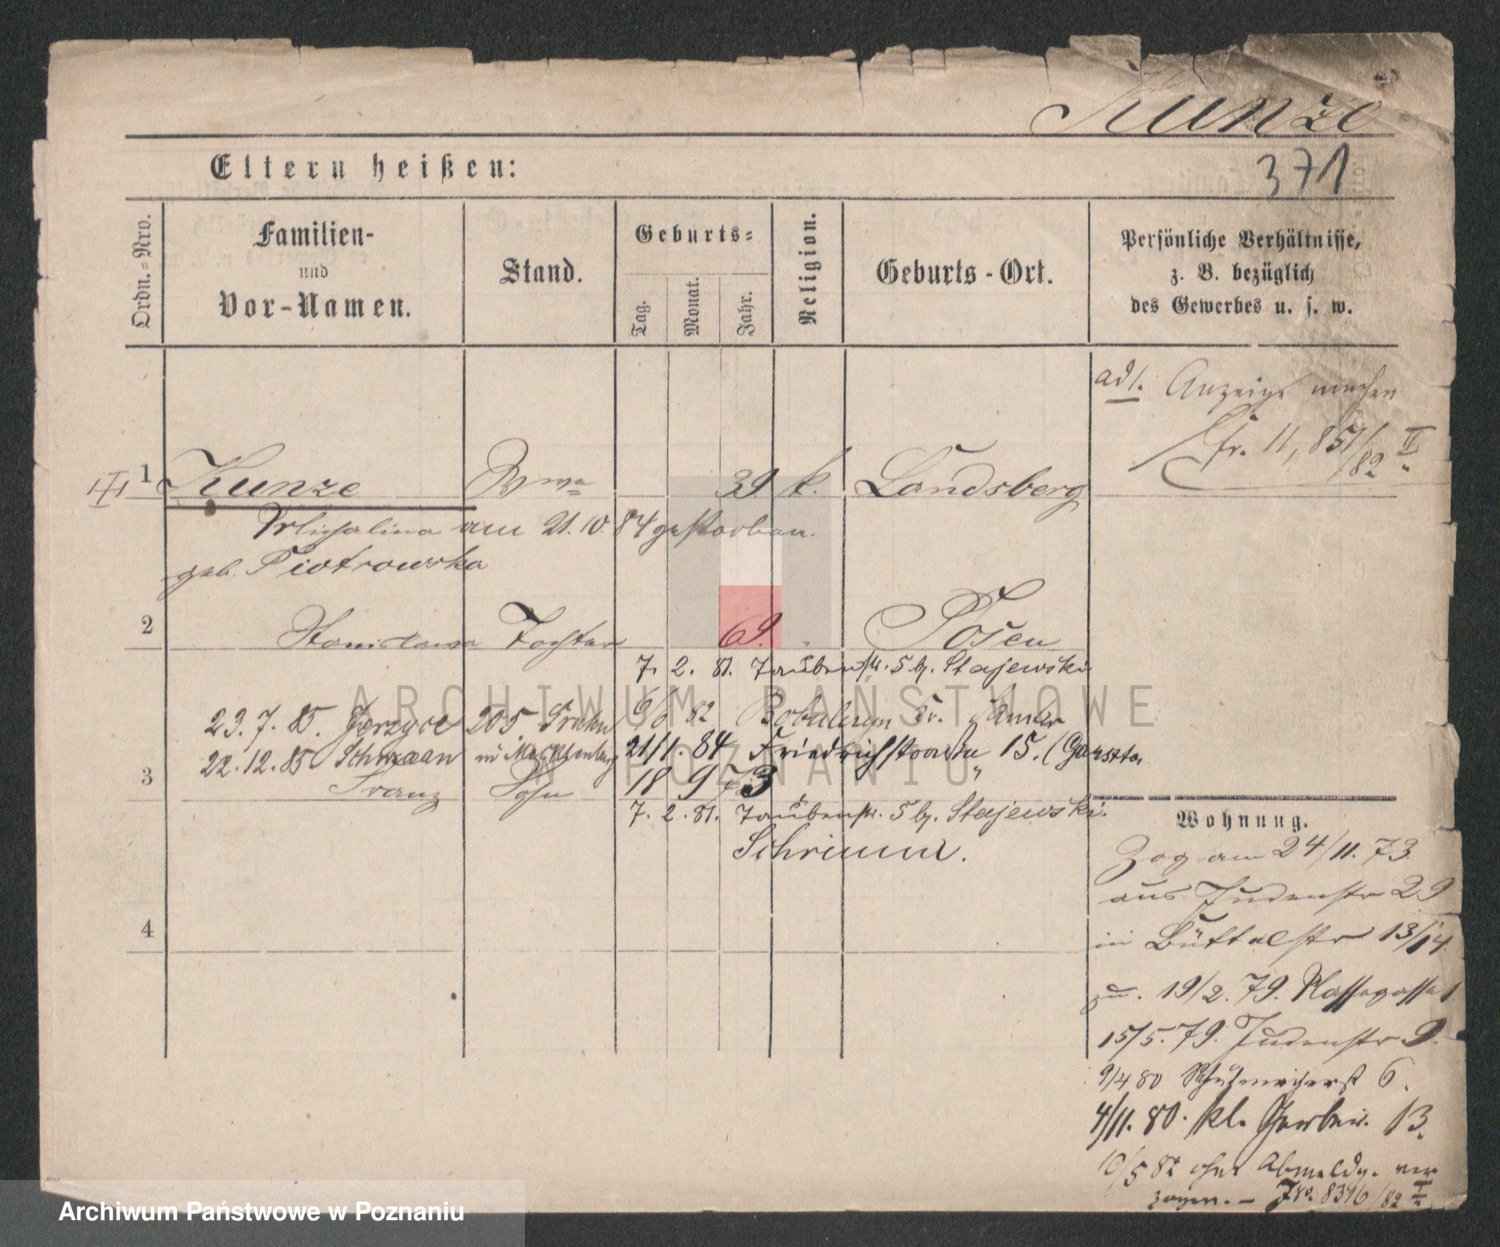 Kunze
371
Eltern heißen:
Ordn.-Nro.
Familien-
und
Vor-Namen.
Stand.
Geburts-
Tag.
Monat.
Jahr.
Religion.
Geburts-Ort.
Persönliche Verhältnisse,
z. B. bezüglich
des Gewerbes u. s. w.
ad 1. Anzeige machen
Fr. 11,851/82 II
1 Kunze Wwe 39 k. Landsberg
am 21.10.84 gestorben.
geb. Piotrowska
2 Stanislawa Tochter 69. Posen
7. 2. 81. Taubenstr. 5 b. Stajewski
23.7.85 Jerzyce 205 6/6 82
22.12.85 in Mecklenburg 21/1. 84 Friedrichstraße 15.
3 Franz Sohn 18 9 73
7. 2. 81. Taubenstr. 5 b. Stajewski.
Schrimm.
4
Wohnung.
Zog am 24/11. 73
aus Judenstr 29
in Büttelstr 13/14.
19/2. 79.
15/5. 79. Judenstr 9.
9/4 80 6.
4/11. 80. kl. Gerber. 13.
10/5 82 ohne Abmeldg. ver
zogen. - Jno. 8396/82 I
ARCHIWUM PAŃSTWOWE
W POZNANIU
Archiwum Państwowe w Poznaniu